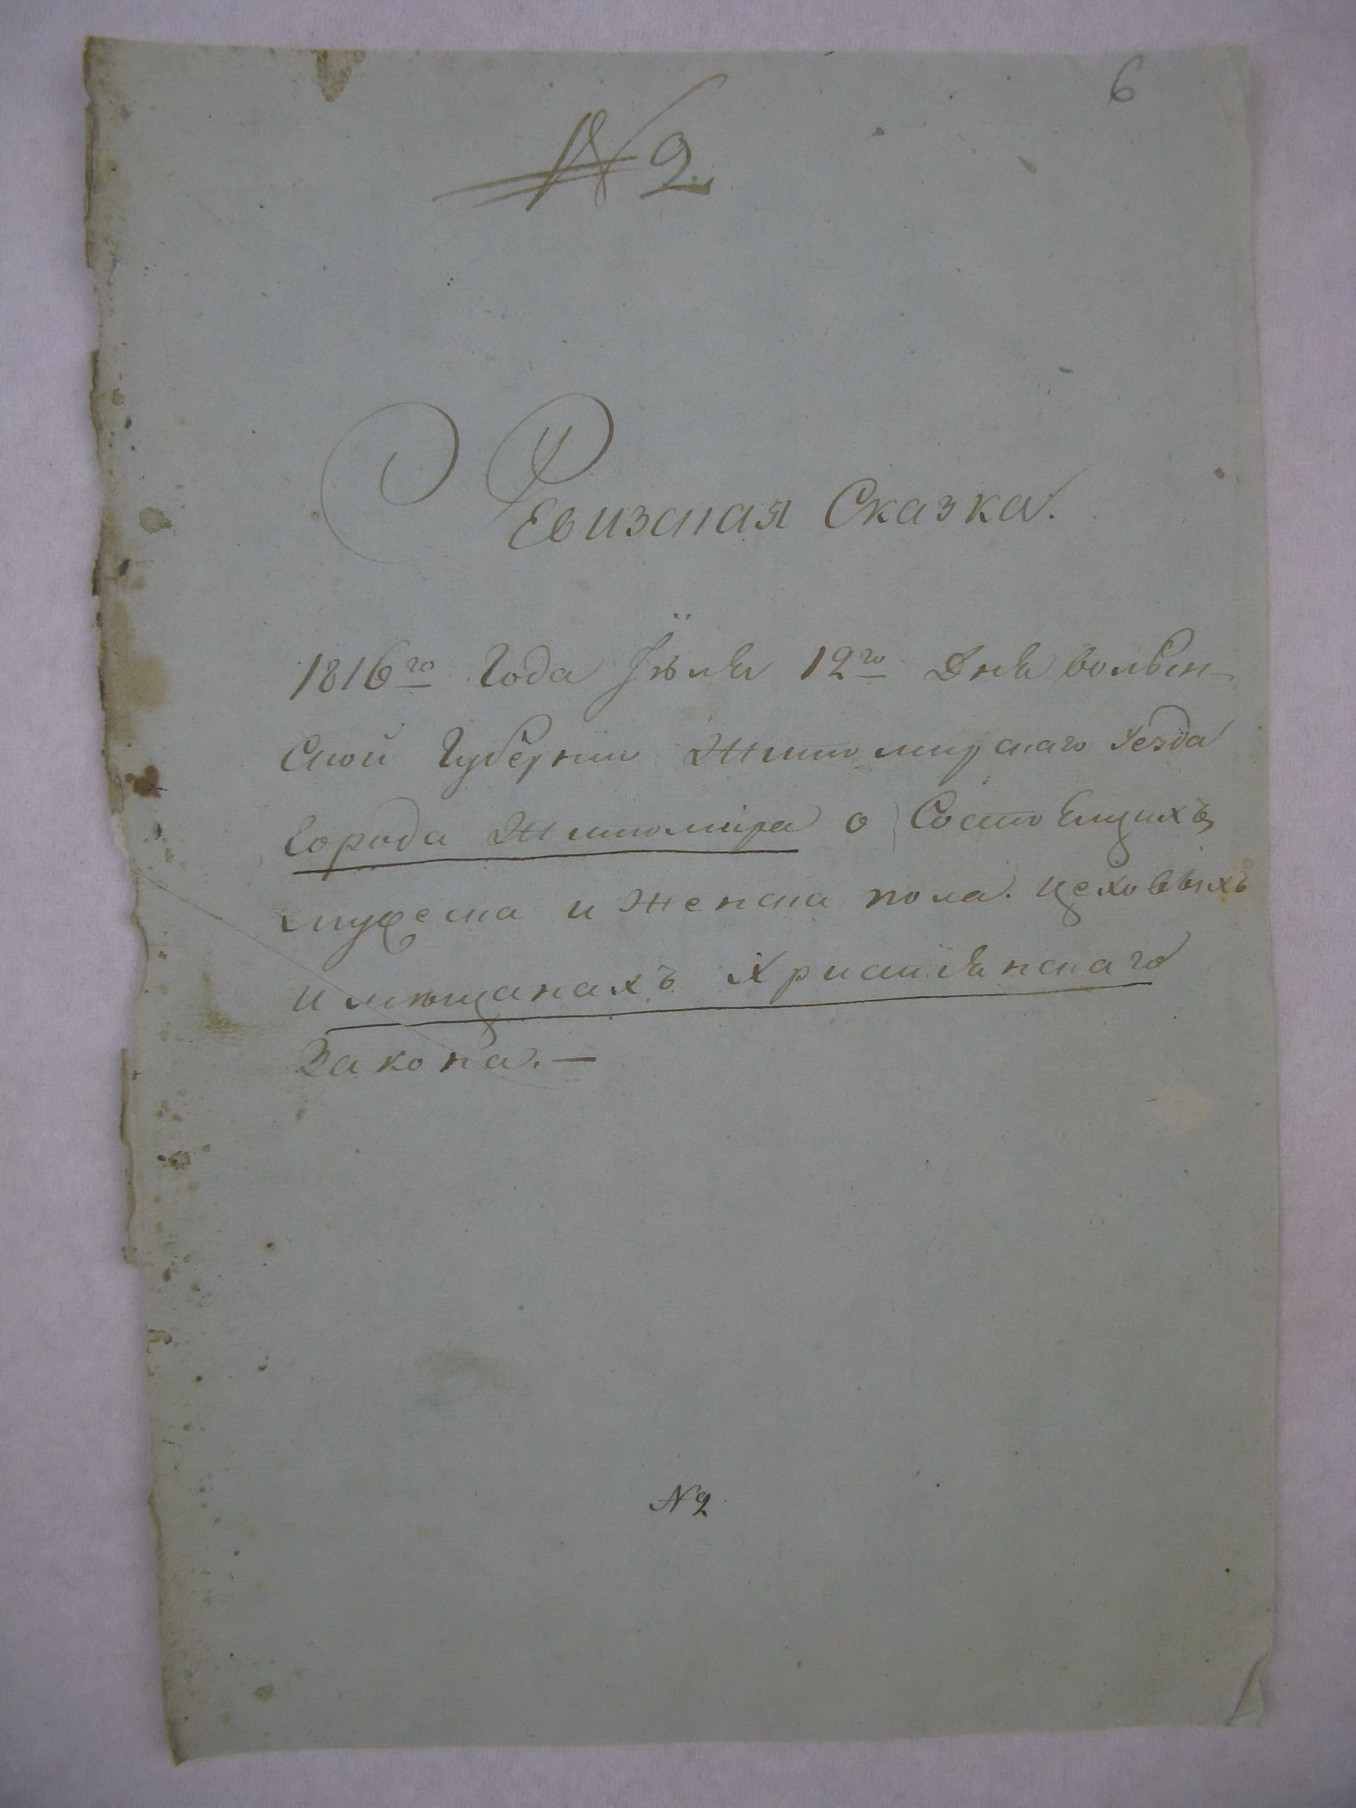 6
№ 2.
Ревизская Сказка.
1816го Года Іюля 12го Дня волын-
ской Губернии Житомирскаго Уезда
Города Житомира о Состоящихъ
мужеска и женска пола. цеховыхъ
и мещанахъ Христианскаго
Закона. —
№ 2